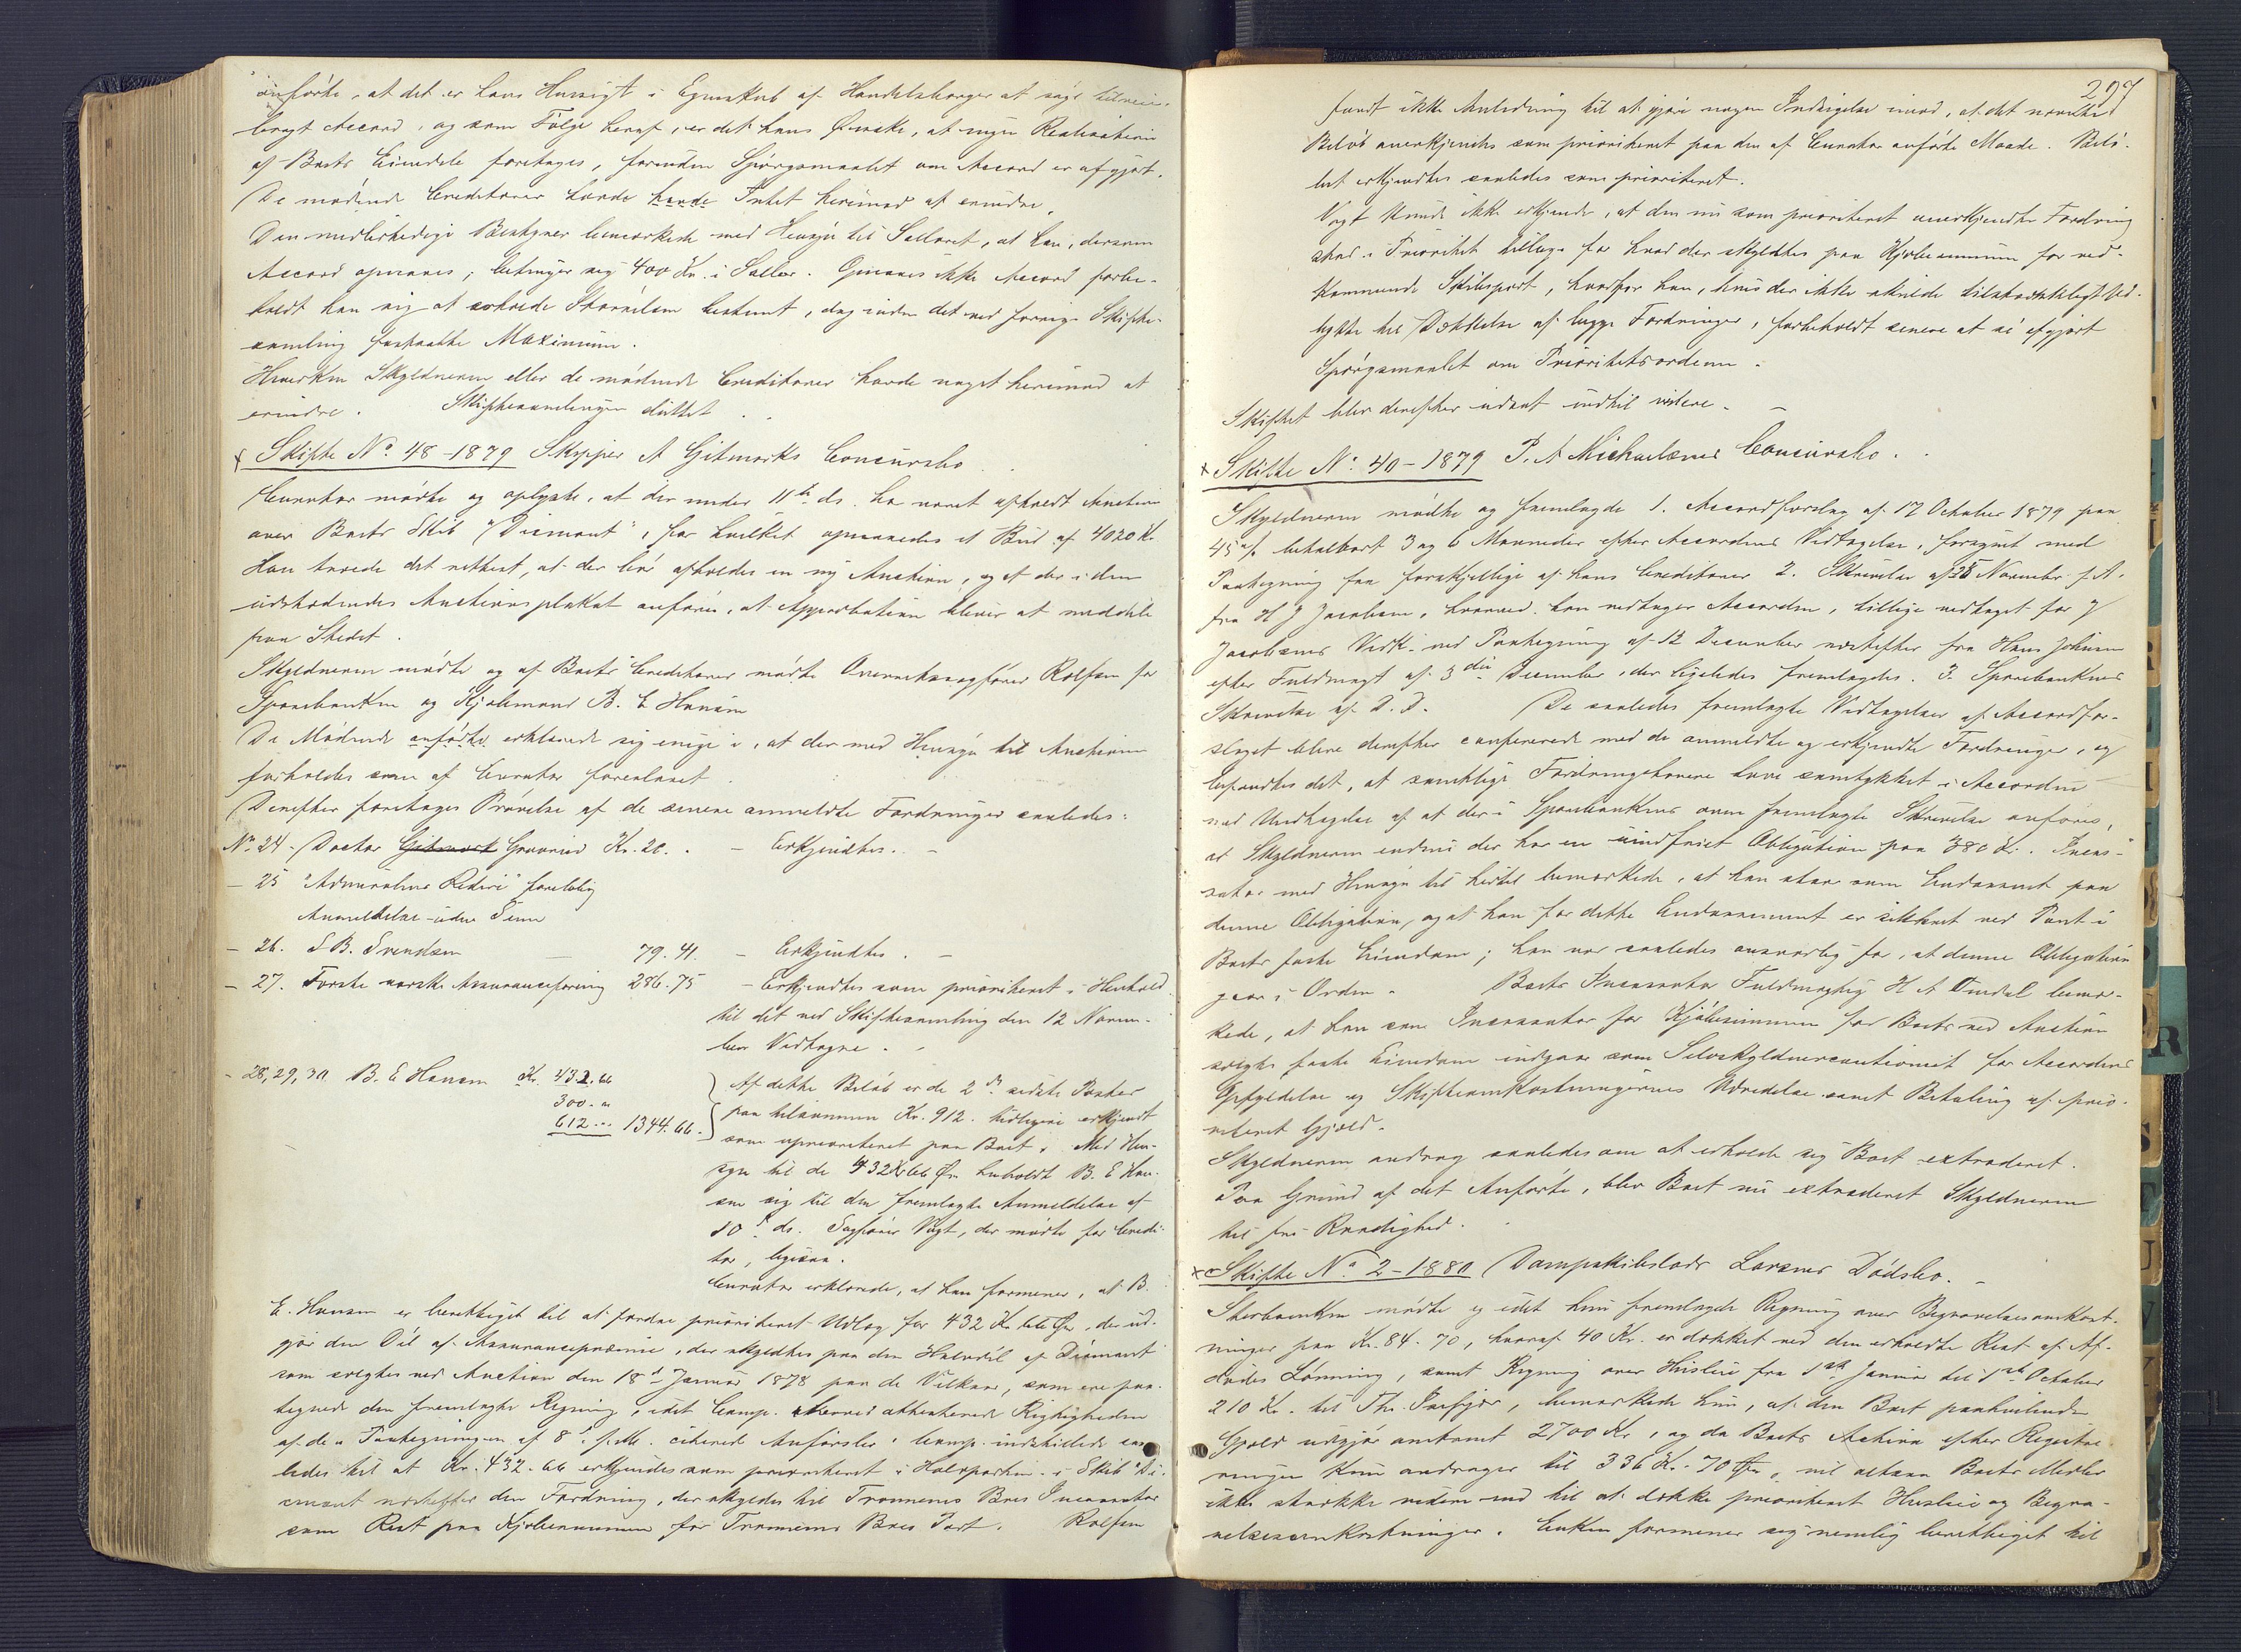 anførte, at det er hans Hensigt i Egenskab af Handelsborger at søge tilveie-
bragt Accord, og som Følge heraf, er det hans Ønske, at ingen Realisation
af Boets Eiendele foretages, forinden Spørgsmaalet om Accord er afgjort.
De mødende Creditorer havde havde Intet herimod at erindre.
Den midlertidige Bestyrer bemærkede med Hensyn til Sallæret, at han, dersom
Accord opnaaes, betinger sig 400 Kr. i Sallær. Opnaaes ikke Accord forbe-
holdt han sig at erholde Størrelsen bestemt, dog inden det ved forrige Skifte-
samling fastsatte Maximum.
Hverken Skyldneren eller de mødende Creditorer havde noget herimod at
erindre. Skiftesamlingen sluttet.
Skifte No. 48-1879 Skipper A Gitmarks Concursbo.
Curator mødte og oplyste, at der under 11te ds. har været afholdt Auction
over Boets Skib "Diamant", for hvilket opnaaedes et Bud af 4020 Kr.
Han troede det rettest, at der bør afholdes en ny Auction, og at der i den
udstedendes Auctionsplakat anføres, at Approbation bliver at meddele
paa Stedet.
Skyldneren mødte og af Boets Creditorer mødte Overretssagfører Rolfsen for
Sparebanken og Kjøbmand B. E Hansen
De Mødende anførte erklærede sig enige i, at der med Hensyn til Auctionen
forholdes som af Curator foreslaaet.
Derefter foretoges Prøvelse af de senere anmeldte Fordringer saaledes:
No. 24 - Doctor Gitmark Kr. 26. - Erkjendtes. -
- 25 "Admiralens Rederi" foreløbig
Anmeldelse uden Sum
- 26. S B. Svendsen - 79.41. - Erkjendtes. -
- 27. Første norske Assuranceforening 286.75 - Erkjendtes som prioriteret i Henhold
til det ved Skiftesamling den 12 Novem-
ber Vedtagne.
- 28, 29, 30. B. E Hansen Kr. 432.66
300. "
612 .. 1344.66.
Af dette Beløb er de 2de sidste Poster
paa tilsammen Kr. 912. tidligere erkjendt
som uprioriteret paa Boet. Med Hen-
syn til de 432 Kr 66 Øre henholdt B. E Han-
sen sig til den fremlagte Anmeldelse af
10de ds. Sagfører Vogt, der mødte for Credi-
tor, ligesaa.
Curator erklærede, at han formener, at B.
E. Hansen er berettiget til at fordre prioriteret Udlæg for 432 Kr 66 Øre, der ud-
gjør den Del af Assurancepræmie, der skyldtes paa den Halvdel af Diamant
som solgtes ved Auction den 18de Januar 1878 paa de Vilkaar, som ere paa-
tegnede den fremlagte Regning, idet Comp. herved attesterede Rigtigheden
af de i Paategningen af 8de f.M. citerede Anførsler. Comp. indstillede saa-
ledes til at Kr. 432.66 erkjendes som prioriteret i Halvparten i Skib "Di-
amant næstefter den Fordring, der skyldes til Tronnems Boes Incassator
som Rest paa Kjøbesummen for Tronnems Boes Part. Rolfsen
297
fandt ikke Anledning til at gjøre nogen Indsigelse imod, at det nævnte
Beløb anerkjendes som prioriteret paa den af Curator anførte Maade. Belø-
bet erkjendtes saaledes som prioriteret.
Vogt kunde ikke erkjende, at den nu som prioriteret anerkjendte Fordring
staar i Prioritet tilbage for hvad der skyldtes paa Kjøbesummen for ved-
kommende Skibspart, hvorfor han, hvis der ikke skulde tilstrækkeligt Ud-
bytte til Dækkelse af begge Fordringer, forbeholdt senere at se afgjort
Spørgsmaalet om Prioritetsordenen.
Skiftet blev derefter udsat indtil videre. -
Skifte No. 40-1879 P. A Michaelsens Concursbo.
Skyldneren mødte og fremlagde 1. Accordforslag af 17 October 1879 paa
45 o/o betalbart 3 og 6 Maaneder efter Accordens Vedtagelse, forsynet med
Paategning fra forskjellige af hans Creditorer 2. Skrivelse af 28 November f. A.
fra H J Jacobsen, hvorved han vedtager Accorden, tillige vedtaget for J
Jacobsens Vedk. ved Paategning af 12 December næstefter fra Hans Johnsen
efter Fuldmagt af 3die December, der ligeledes fremlagdes. 3. Sparebankens
Skrivelse af D. D. De saaledes fremlagte Vedtagelser af Accordfor-
slaget bleve derefter confererede med de anmeldte og erkjendte Fordringer, og
befandtes det, at samtlige Fordringshavere have samtykket i Accorden
med Undtagelse af at der i Sparebankens oven fremlagte Skrivelse anføres,
at Skyldneren endnu der har en uindfriet Obligation paa 380 Kr. Incas-
sator med Hensyn til hertil bemærkede, at han staar som Endossent paa
denne Obligation, og at han for dette Endossement er sikkret ved Pant i
Boets faste Eiendom; han var saaledes ansvarlig for, at denne Obligation
gaar i Orden. Boets Incassator Fuldmægtig H A Omdal bemær-
kede, at han som Incassator for Kjøbesummen for Boets ved Auction
solgte faste Eiendom indgaar som Selvskyldnercautionist for Accordens
Opfyldelse og Skifteomkostningernes Udredelse samt Betaling af prio-
riteret Gjæld.
Skyldneren androg saaledes om at erholde sig Boet extraderet.
Paa Grund af det Anførte, blev Boet nu extraderet Skyldneren
til fri Raadighed.
Skifte No. 2-1880 Dampskibslods Larsens Dødsbo. -
Sterboenken mødte og idet hun fremlagde Regning over Begravelsesomkost-
ninger paa Kr. 84.70, hvoraf 40 Kr. er dækket ved den erholdte Rest af Af-
dødes Lønning, samt Regning over Husleie fra 1ste Januar til 1ste October
210 Kr. til Th. bemærkede hun, at den Boet paahvilende
Gjæld udgjør omtrent 2700 Kr, og da Boets Activa efter Registre-
ringen kun andrager til 336 Kr. 70 Øre, vil altsaa Boets Midler
ikke strække videre end til at dække prioriteret Husleie og Begra-
velsesomkostninger. Enken formener sig nemlig berettiget til